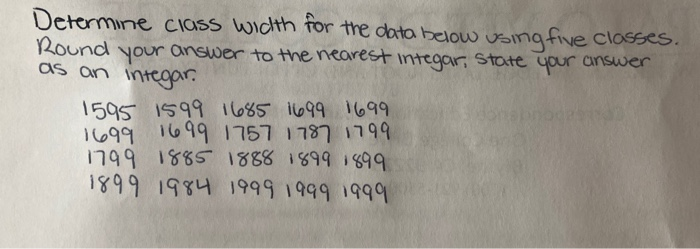 Determine class width for the data below using five classes.
Round your answer to the nearest integar; state your answer
as an integar.
1595 1599 1685 1699 1699
1699 1699 1757 1787 1799
1799 1885 1888 1899 1899
1899 1984 1999 1999 1999